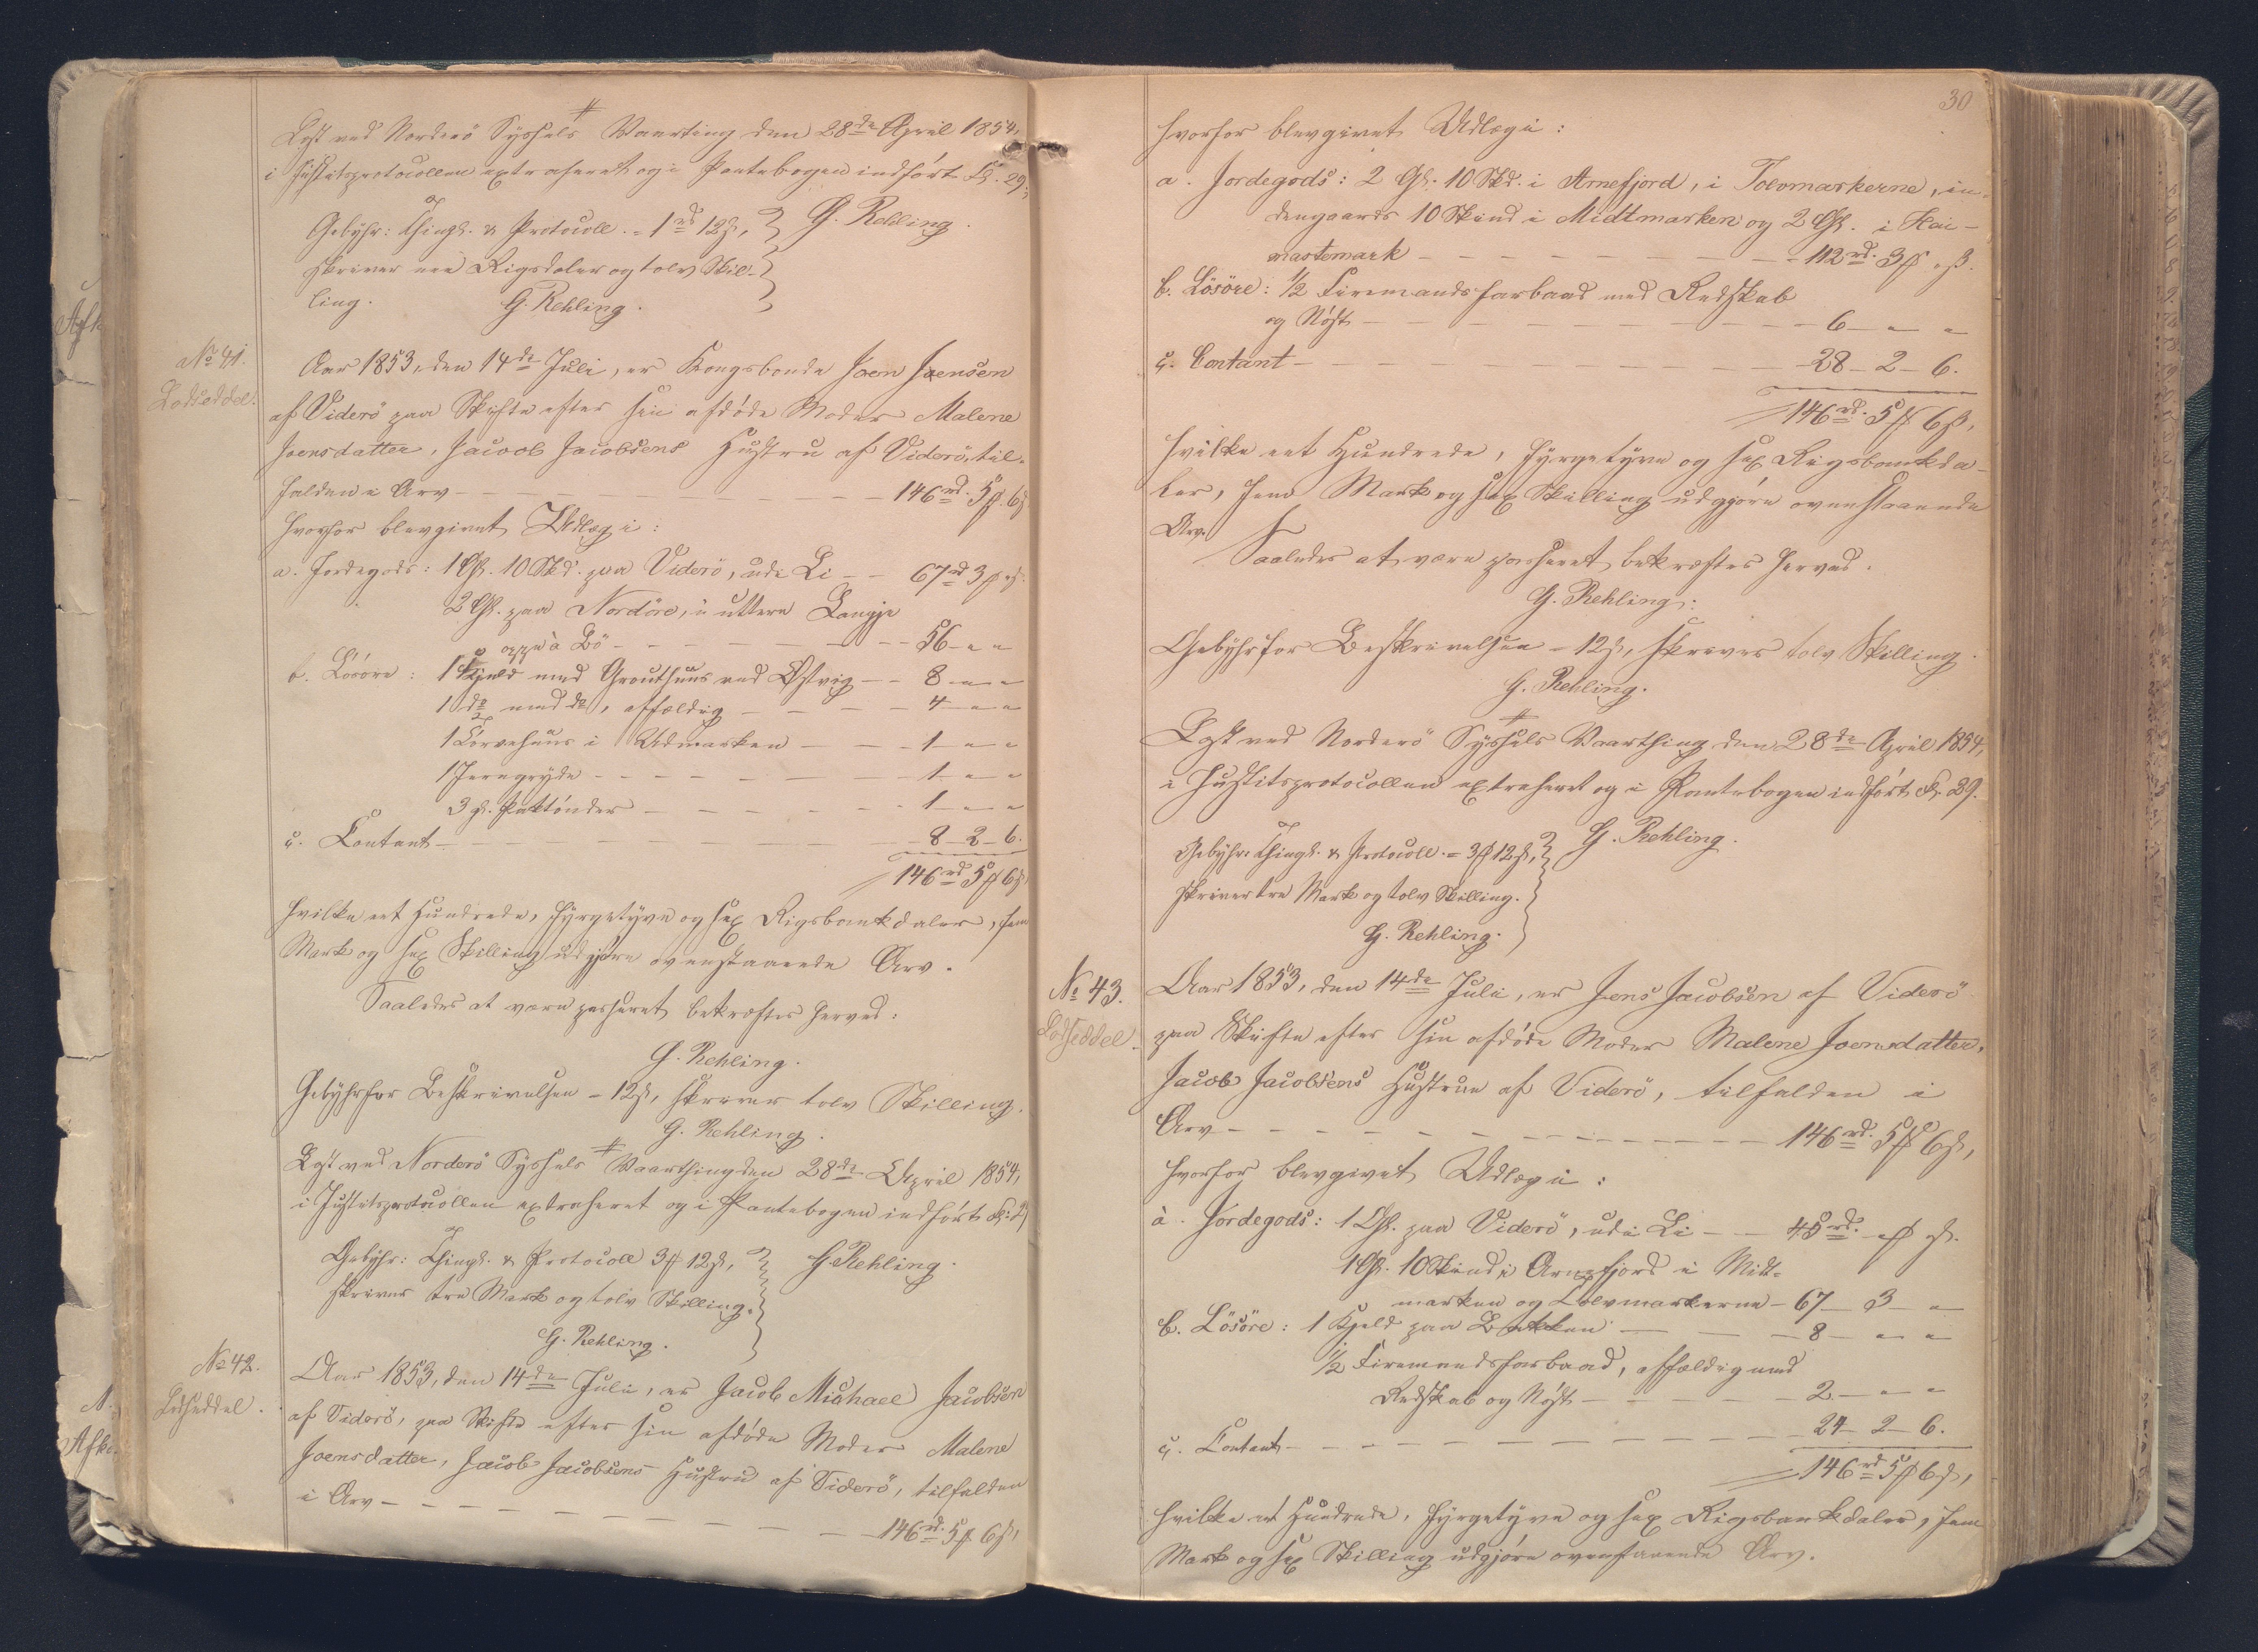 Læst ved Norderö Syssels Vaarting den 28de April 1854,
i Justitsprotocollen extraheret og i Pantebogen indført Fol. 29.
Gebyhr: Thingl. & Protocoll. = 1rd 12ß,
G. Rehling.
skriver een Rigsdaler og tolv Skil-
ling.
G. Rehling.
No 41.
Lodseddel.
Aar 1853, den 14de Juli, er Kongsbonde Joen Joensen
af Viderö paa Skifte efter sin afdøde Moder Malene
Joensdatter, Jacob Jacobsens Hustru af Viderö, til-
falden i Arv 146rd. 5ꝟ. 6ß
hvorfor blev givet Udlæg i:
a. Jordegods: 1 Gl. 10 Skd. paa Viderö, ude Li 67rd 3ꝟ "ß.
2 Gl. paa Nordöre, i uttere Langje
oppe à Bö 56 " "
b. Lösöre: 1 Kjeld med Grouthuus ved Østvig 8 " "
1 do med do, affældig 4 " "
1 Törvehuus i Udmarken 1 " "
1 Jerngryde 1 " "
3 gl. Salttönder 1 " "
c. Contant 8 2 6.
146rd 5ꝟ 6ß,
hvilke eet Hundrede, fyrgetyve og sex Rigsbankdaler, fem
Mark og sex Skilling udgjöre ovenstaaende Arv.
Saaledes at være passeret bekræftes herved:
G. Rehling.
Gebyhr for Beskrivelsen = 12ß, skriver tolv Skilling.
G. Rehling.
Læst ved Norderö Syssels Vaarthing den 28de April 1854,
i Justitsprotocollen extraheret og i Pantebogen indført Fol. 29
Gebyhr: Thingl. & Protocoll 3ꝟ 12ß,
G. Rehling.
skriver tre Mark og tolv Skilling.
G. Rehling.
No 42.
Lodseddel.
Aar 1853, den 14de Juli, er Jacob Michael Jacobsen
af Viderö, paa Skifte efter sin afdøde Moder Malene
Joensdatter, Jacob Jacobsens Hustru af Viderö, tilfalden
i Arv 146rd. 5ꝟ 6ß,
30
hvorfor blev givet Udlæg i:
a. Jordegods: 2 Gl. 10 Skd. i Arnefjord, i Tolvmarkerne, in-
dengaards 10 Skind i Midtmarken og 2 Gl. i Hei-
mastemark 112rd. 3ꝟ "ß.
b. Lösöre: 1/2 Firemandsfarbaad med Redskab
og Nöst 6 " "
c. Contant 28 2 6.
146rd. 5ꝟ 6ß,
hvilke eet Hundrede, fyrgetyve og sex Rigsbankda-
ler, fem Mark og sex Skilling udgjöre ovenstaaende
Arv.
Saaledes at være passeret bekræftes herved.
G. Rehling.
Gebyhr for Beskrivelsen = 12ß, skriver tolv Skilling.
G. Rehling.
Læst ved Norderö Syssels Vaarthing den 28de April 1854,
i Justitsprotocollen extraheret og i Pantebogen indført Fol. 29.
Gebyhr: Thingl. & Protocoll. = 3ꝟ 12ß,
G. Rehling.
skriver tre Mark og tolv Skilling.
G. Rehling.
No 43.
Lodseddel.
Aar 1853, den 14de Juli, er Jens Jacobsen af Viderö
paa Skifte efter sin afdøde Moder Malene Joensdatter,
Jacob Jacobsens Hustrue af Viderö, tilfalden i
Arv 146rd. 5ꝟ 6ß,
hvorfor blev givet Udlæg i:
a. Jordegods: 1 Gl. paa Viderö, ude Li 45rd. "ꝟ "ß.
1 Gl. 10 Skind i Arnefjord i Midt-
marken og Tolvmarkerne 67 3 "
b. Lösöre: 1 Kjeld paa Bakken 8 " "
1/2 Firemandsfarbaad, affældig med
Redskab og Nöst 2 " "
c. Contant 24 2 6.
146rd 5ꝟ 6ß,
hvilke et Hundrede, fyrgetyve og sex Rigsbankdaler, fem
Mark og sex Skilling udgjöre ovenstaaende Arv.